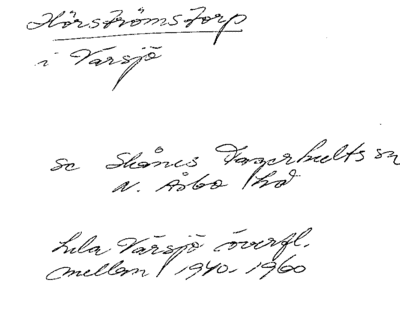 Hörströmstorp
i Varsjö
se Skånes Fagerhults sn
N. Åsbo hd
hela Värsjö överfl.
mellan 1940-1960